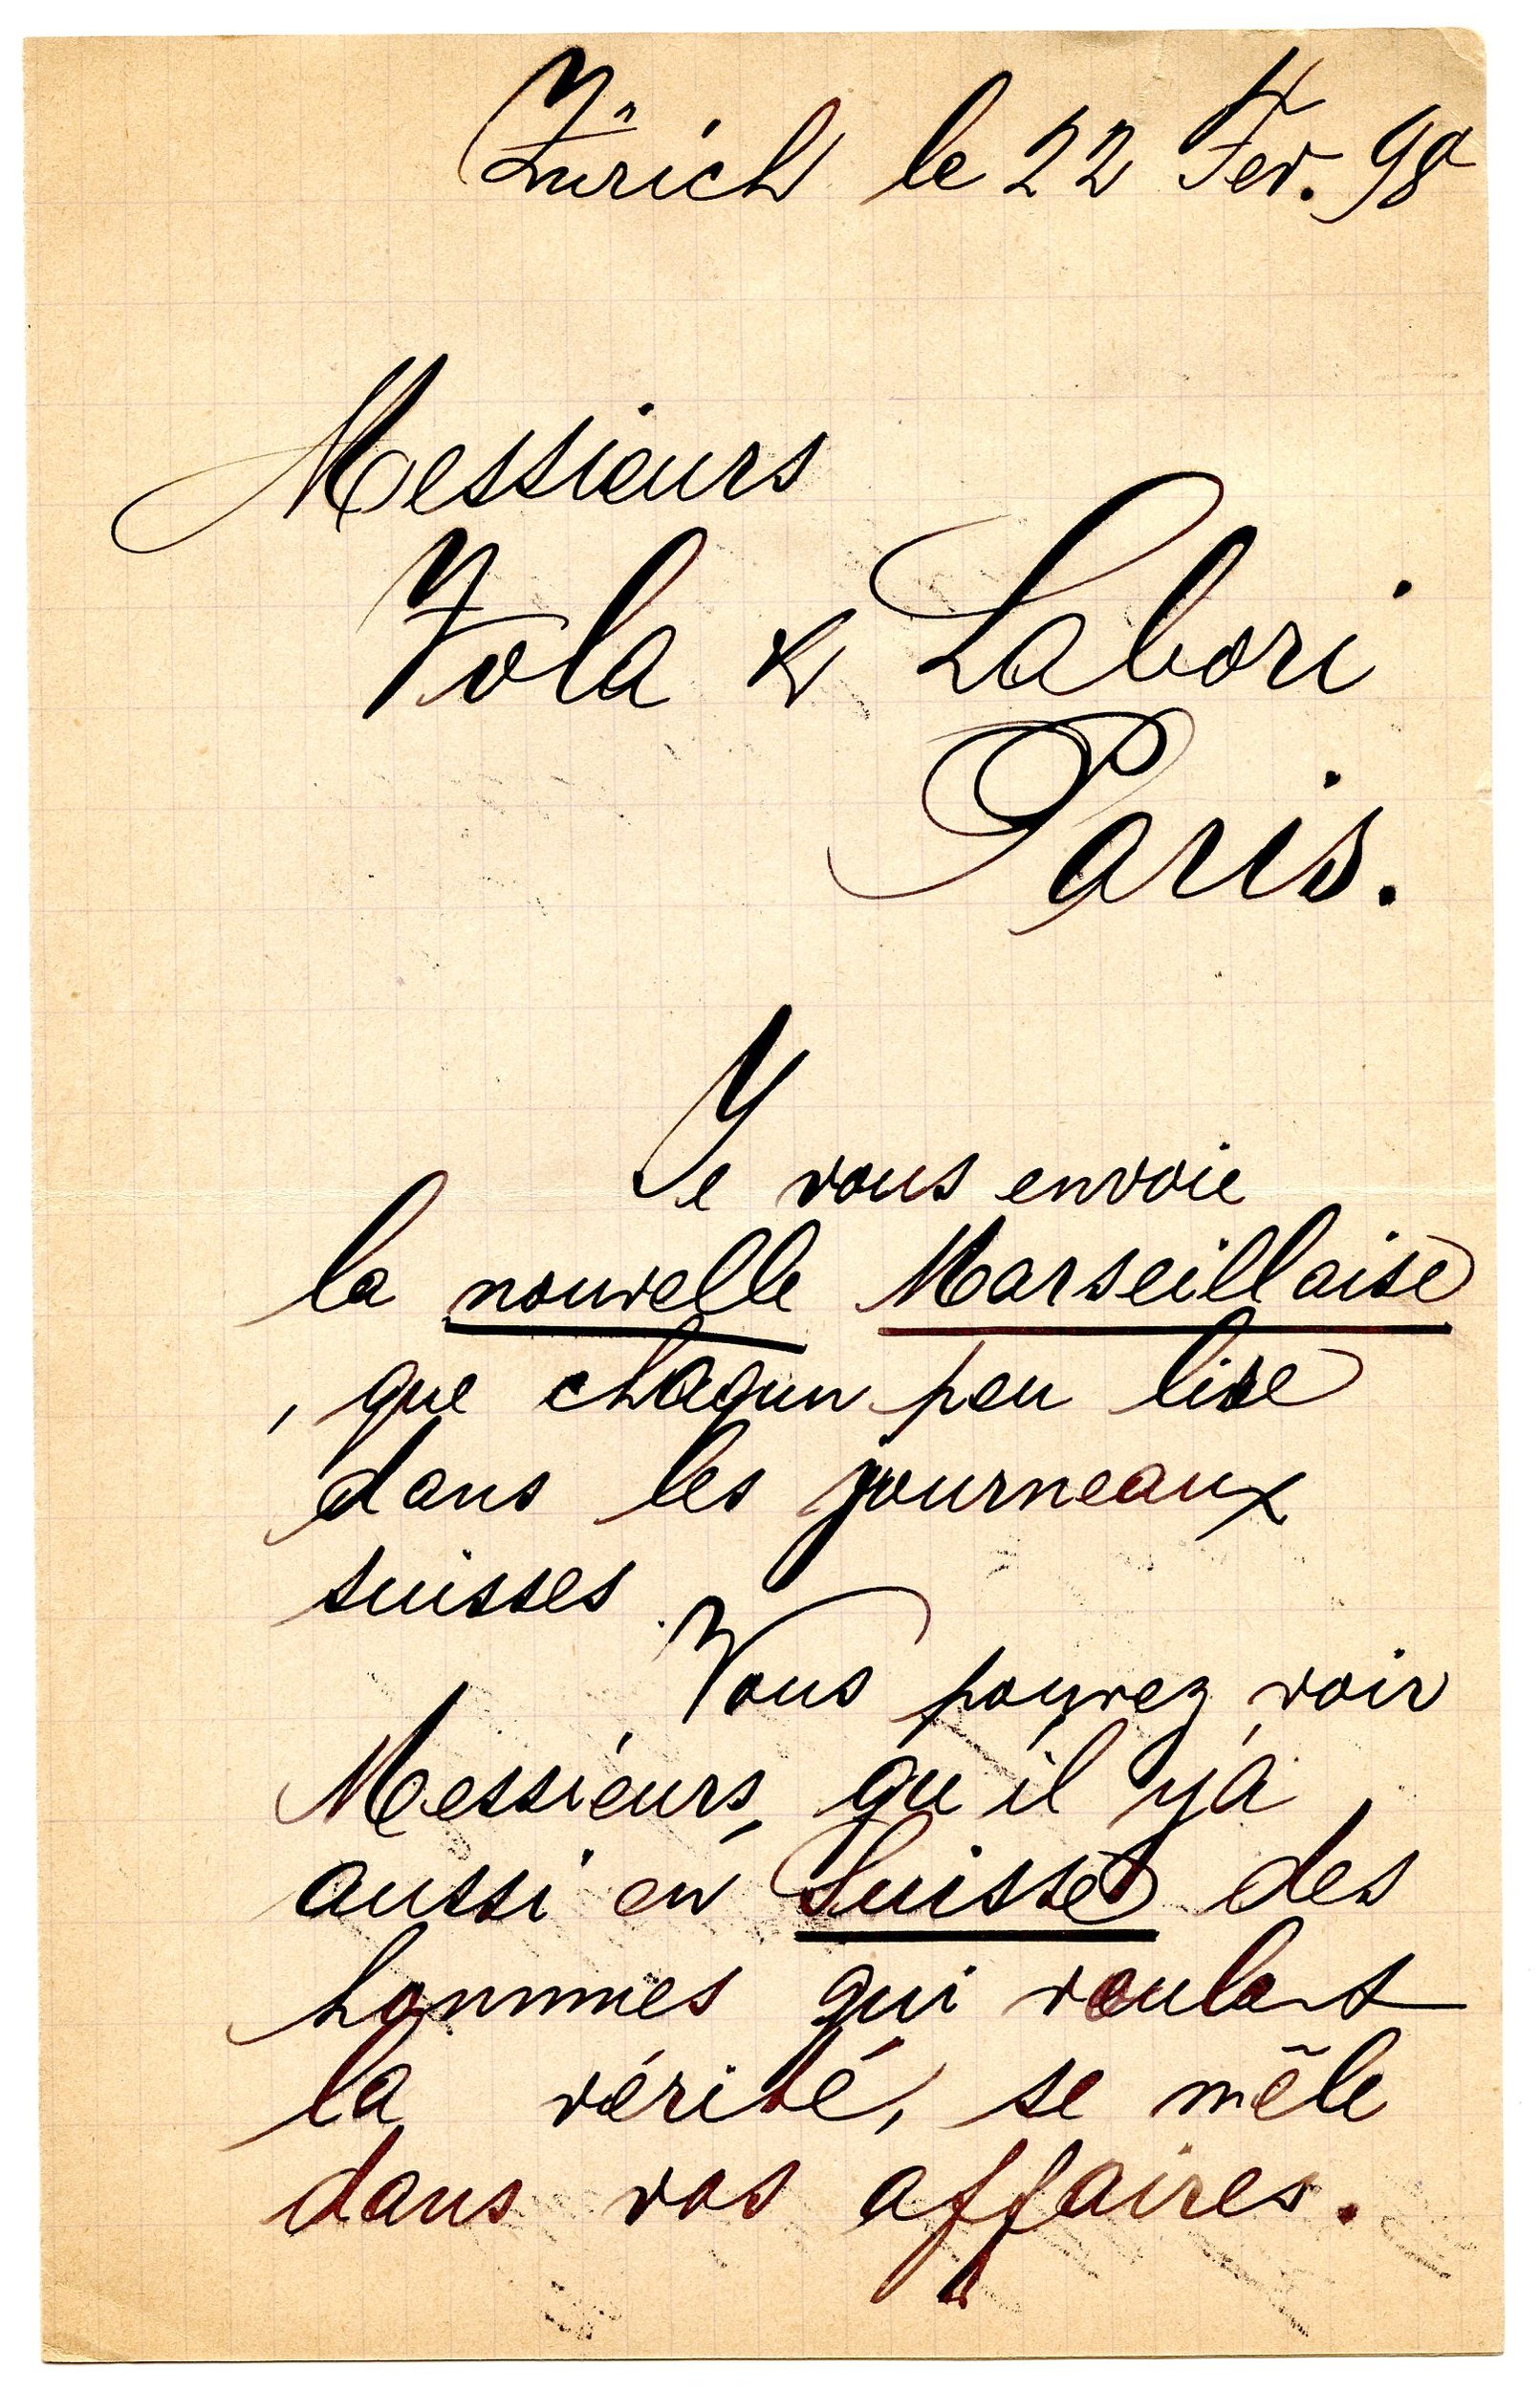 Zürich le 22 Fev. 98
Messieurs
Zola & Labori
Paris.
Je vous envoie
la nouvelle Marseillaise
, que chaqun peu lire
dans les journeaux
suisses.
Vous pouvez voir
Messieurs, qu'il y a
aussi en Suisse des
hommes qui veulent
la vérité, se mêle
dans vos affaires.